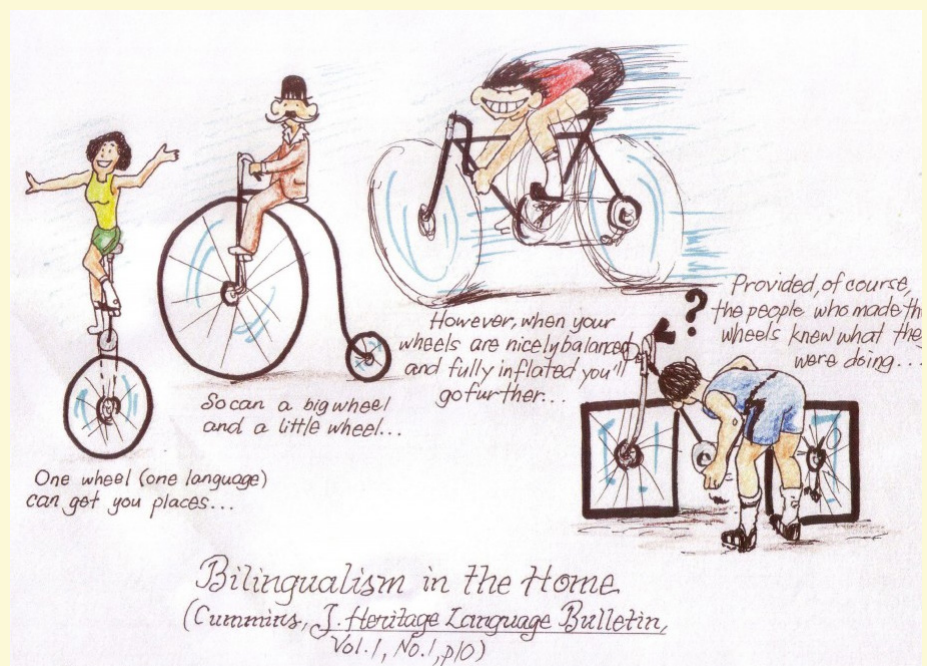 One wheel (one language)
can get you places...
So can a big wheel
and a little wheel...
However, when your
wheels are nicely balanced
and fully inflated you'll
go further...
?
Provided, of course,
the people who made th
wheels knew what the
were doing...
Bilingualism in the Home
(Cummins, J. Heritage Language Bulletin,
Vol. 1, No. 1, p10)